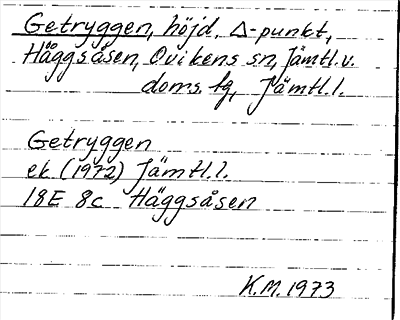 Getryggen, höjd, △-punkt,
Häggsåsen, Ovikens sn, Jämtl. v.
doms. fg, Jämtl. l.
Getryggen
ek. (1972) Jämtl. l.
18E 8c Häggsåsen
K.M. 1973